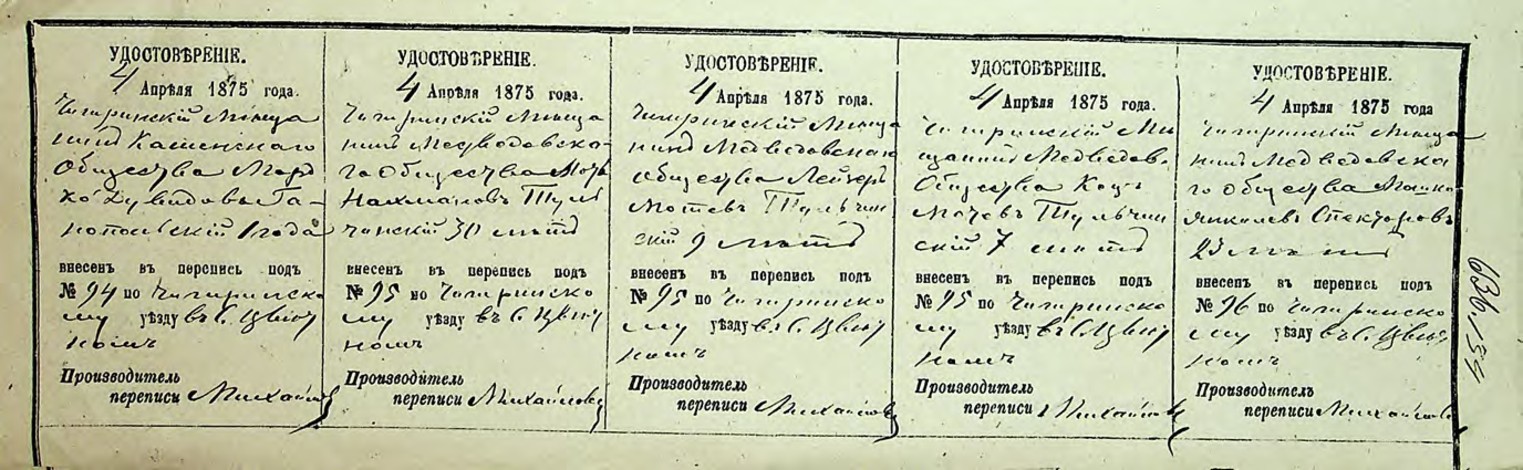 УДОСТОВѢРЕНІЕ.
4 Апрѣля 1875 года.
Чигиринскій Мѣща
нинъ Каменскаго
ОбществаМорд
ко Дувидовъ
1 года
внесенъ въ перепись подъ
№ 94 по Чигиринско
му уѣзду въ с. Цвѣт
номъ
Производитель
переписи Михайлов
УДОСТОВѢРЕНІЕ.
4 Апрѣля 1875 года.
Чигиринскій Мѣща
нинъ Медвѣдовска-
го Общества
Нахмановъ Туль
чинскій 30 лѣтъ
внесенъ въ перепись подъ
№ 95 по Чигиринско
му уѣзду въ с. Цвѣт
номъ
Производитель
переписи Михайловъ
УДОСТОВѢРЕНІЕ.
4 Апрѣля 1875 года.
Чигиринскій Мѣща
нинъ Медведовскаго
общества Лейзеръ
Мотевъ Тульчин
скій 9 лѣтъ
внесенъ въ перепись подъ
№ 95 по Чигиринско
му уѣзду въ с. Цвѣт
номъ
Производитель
переписи Михайловъ
УДОСТОВѢРЕНІЕ.
4 Апрѣля 1875 года.
Чигиринскій Мѣ
щанинъ Медведов.
Общества
Мотевъ Тульчин
скій 7 лѣтъ
внесенъ въ перепись подъ
№ 95 по Чигиринско
му уѣзду въ с. Цвѣт
номъ
Производитель
переписи Михайлов
УДОСТОВѢРЕНІЕ.
4 Апрѣля 1875 года
Чигиринскій Мѣща
нинъ Медведовска
го Общества
Янкелевъ Спекторовъ
23 лѣтъ
внесенъ въ перепись подъ
№ 96 по Чигиринско
му уѣзду въ с. Цвѣт
номъ
Производитель
переписи Михайлов